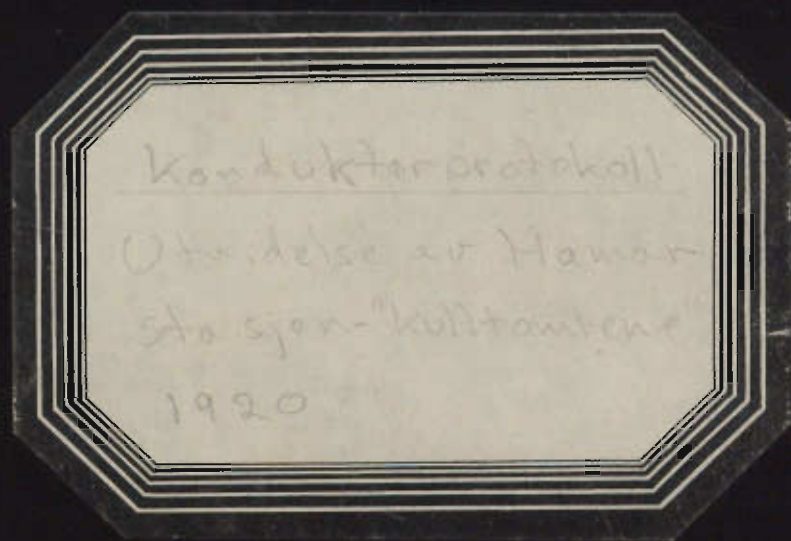 Konduktørprotokoll
Utvidelse av Hamar
stasjon - "Kulltomtene"
1920